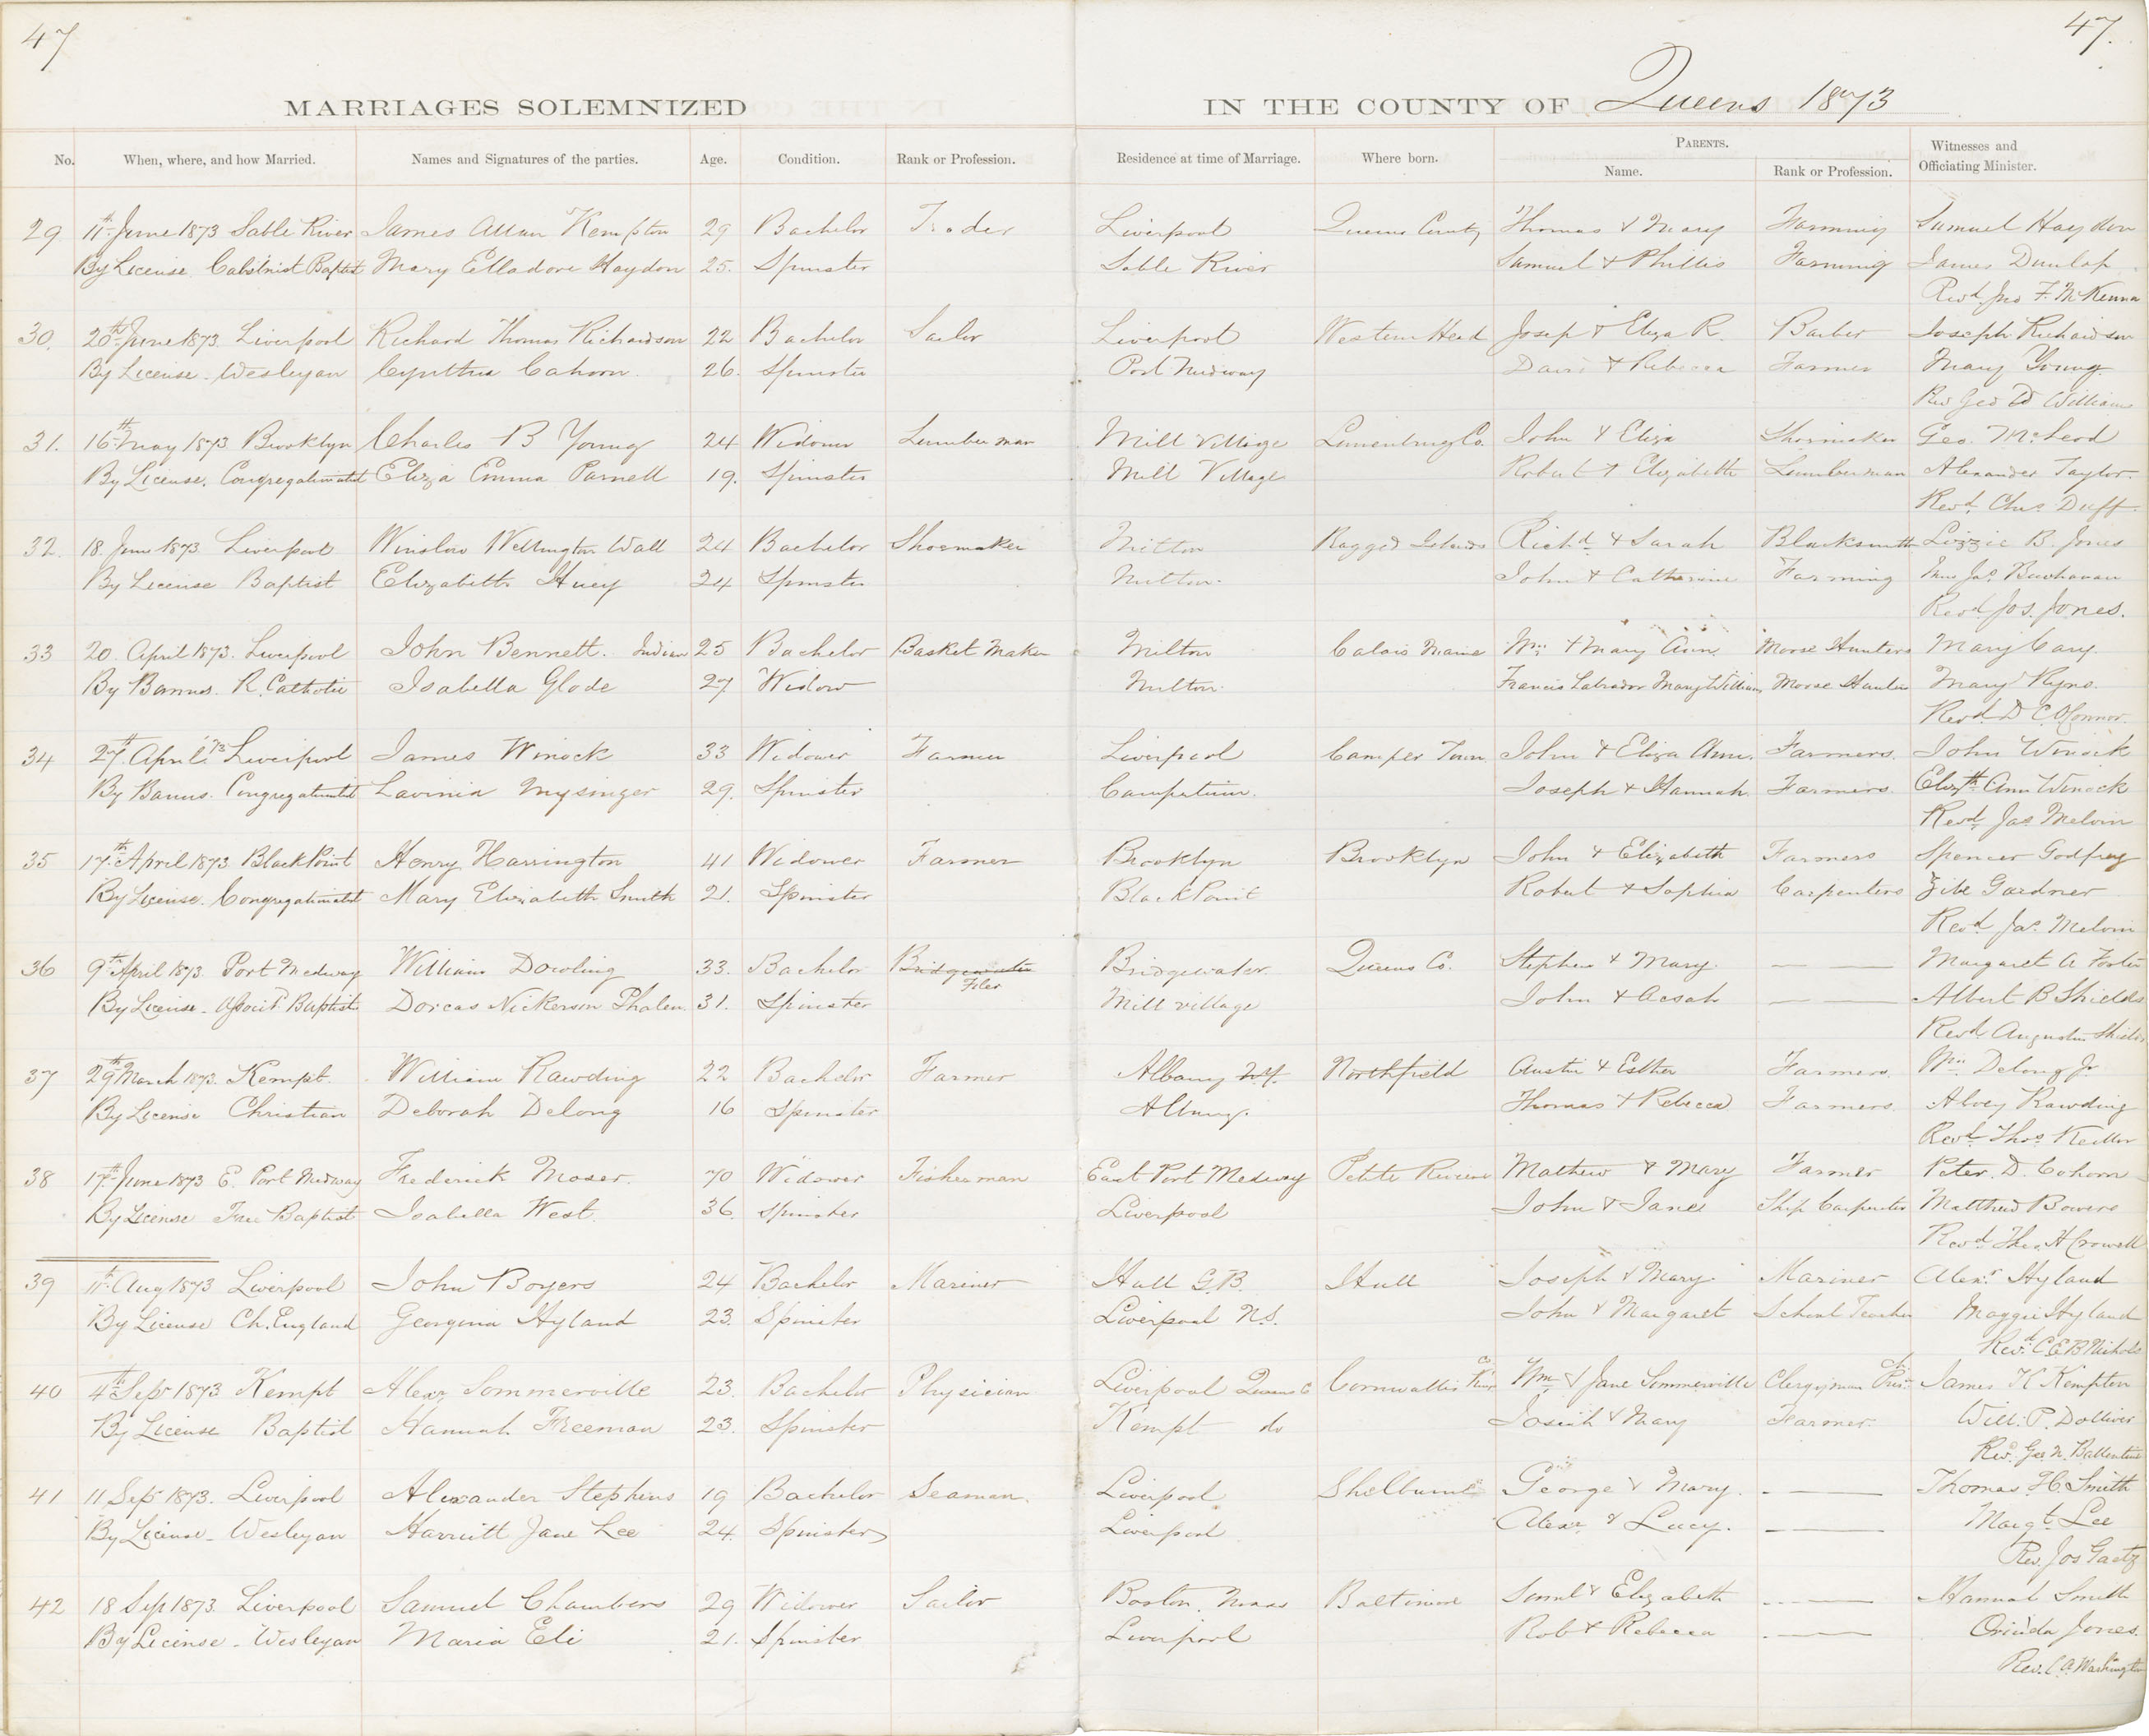 47
47.
MARRIAGES SOLEMNIZED IN THE COUNTY OF Queens 1873
No. When, where, and how Married. Names and Signatures of the parties. Age. Condition. Rank or Profession. Residence at time of Marriage. Where born. PARENTS. Name. Rank or Profession. Witnesses and Officiating Minister.
29 11th June 1873 Sable River James Allan Kempton 29 Bachelor Trader Liverpool Queens County Thomas & Mary Farming Samuel Haydon
By License Calvinist Baptist Mary Elladore Haydon 25. Spinster Sable River Samuel & Phillis Farming James Dunlap
Revd Jno F. McKenna
30. 20th June 1873 Liverpool Richard Thomas Richardson 22 Bachelor Sailor Liverpool Western Head Josep & Eliza R. Barber Joseph Richardson
By License - Wesleyan Cynthia Cahoon 26. Spinster Port Medway David & Rebecca Farmer Mary Young
Rev Geo W Williams
31. 16th May 1873 Brooklyn Charles B Young 24 Widower Lumberman Mill Village Lunenburg Co. John & Eliza Shoemaker Geo. McLeod
By License. Congregationalist Eliza Emma Parnell 19. Spinster Mill Village Robert & Elizabeth Lumberman Alexander Taylor.
Revd. Chas Duff.
32. 18 June 1873 Liverpool Winslow Wellington Wall 24 Bachelor Shoemaker Milton Ragged Islands Richd & Sarah Blacksmith Lizzie B. Jones
By License Baptist Elizabeth Huey 24 Spinster Milton. John & Catherine Farming Jas Buchanan
Revd Jos. Jones.
33 20. April 1873. Liverpool John Bennett. Indian 25 Bachelor Basket Maker Milton Calais Maine Wm & Mary Ann. Moose Hunters Mary Cary.
By Banns. R. Catholic Isabella Glode 27 Widow Milton. Francis Labrador Mary William Moose Hunters Mary Ryno.
Revd. D C. OConnor.
34 27th April '73 Liverpool James Winock 33 Widower Farmer Liverpool Camper Town John & Eliza Ann. Farmers. John Winock
By Banns. Congregationalist Lavinia Mysinger 29. Spinster Joseph & Hannah Farmers. Elizth Ann Winock
Revd. Jas Melvin
35 17th April 1873 Black Point Henry Harrington 41 Widower Farmer Brooklyn Brooklyn John & Elizabeth Farmers Spencer Godfrey
By License. Congregationalist Mary Elizabeth Smith 21. Spinster Black Point Robert & Sophia Carpenters Zibe Gardner
Revd Jas. Melvin
36 9th April 1873. Port Medway William Dowling 33. Bachelor Bridgewater Filer Bridgewater Queens Co. Stephen & Mary. Margaret A Foster
By License - Associtd Baptist Dorcas Nickerson Phalen. 31. Spinster Mill village John & Acsah Albert B Shields
Revd Augustus Shields
37 29th March 1873. Kempt. William Rawding 22 Bachelor Farmer Albany N.Y. Northfield Austin & Esther Farmers. Wm Delong Jr
By License Christian Deborah Delong 16 Spinster Albany. Thomas & Rebecca Farmers Alvey Rawding
Revd Thos Keillor
38 17th June 1873 E. Port Medway Frederick Moser. 70 Widower Fisherman East Port Medway Petite Riviere Mathew & Mary Farmer Peter. D. Cohoon
By License Free Baptist Isabella West. 36. Spinster Liverpool John & Jane Ship Carpenter Matthew Bowers
Revd Thos. H Crowell
39 11th Aug 1873 Liverpool John Boyers 24 Bachelor Mariner Hull G.B. Hull Joseph & Mary. Mariner Alexr Hyland
By License Ch. England Georgina Hyland 23. Spinster Liverpool N.S. John & Margaret School Teacher Maggie Hyland
Revd. C E B Nichols
40 4th Sepr 1873 Kempt Alexr Sommerville 23. Bachelor Physician Liverpool Queens C Cornwallis Kings Co Wm & Jane Sommerville Clergyman James K Kempton
By License Baptist Hannah Freeman 23. Spinster Kempt do Josiah & Mary Farmer. Will. P. Dolliver
Revd. Geo N. Ballentine
41 11 Sepr 1873. Liverpool Alexander Stephens 19 Bachelor Seaman. Liverpool Shelburne George & Mary. Thomas H. Smith
By License - Wesleyan Harriett Jane Lee 24. Spinster Liverpool Alexr & Lucy. Margt. Lee
Rev. Jos Gaetz
42 18 Sep 1873. Liverpool Samuel Chambers 29 Widower Sailor Boston, Mass Baltimore Saml & Elizabeth Hannah Smith
By License - Wesleyan Maria Eli 21. Spinster Liverpool Rob & Rebecca Orinda Jones.
Rev. C. A. Washington